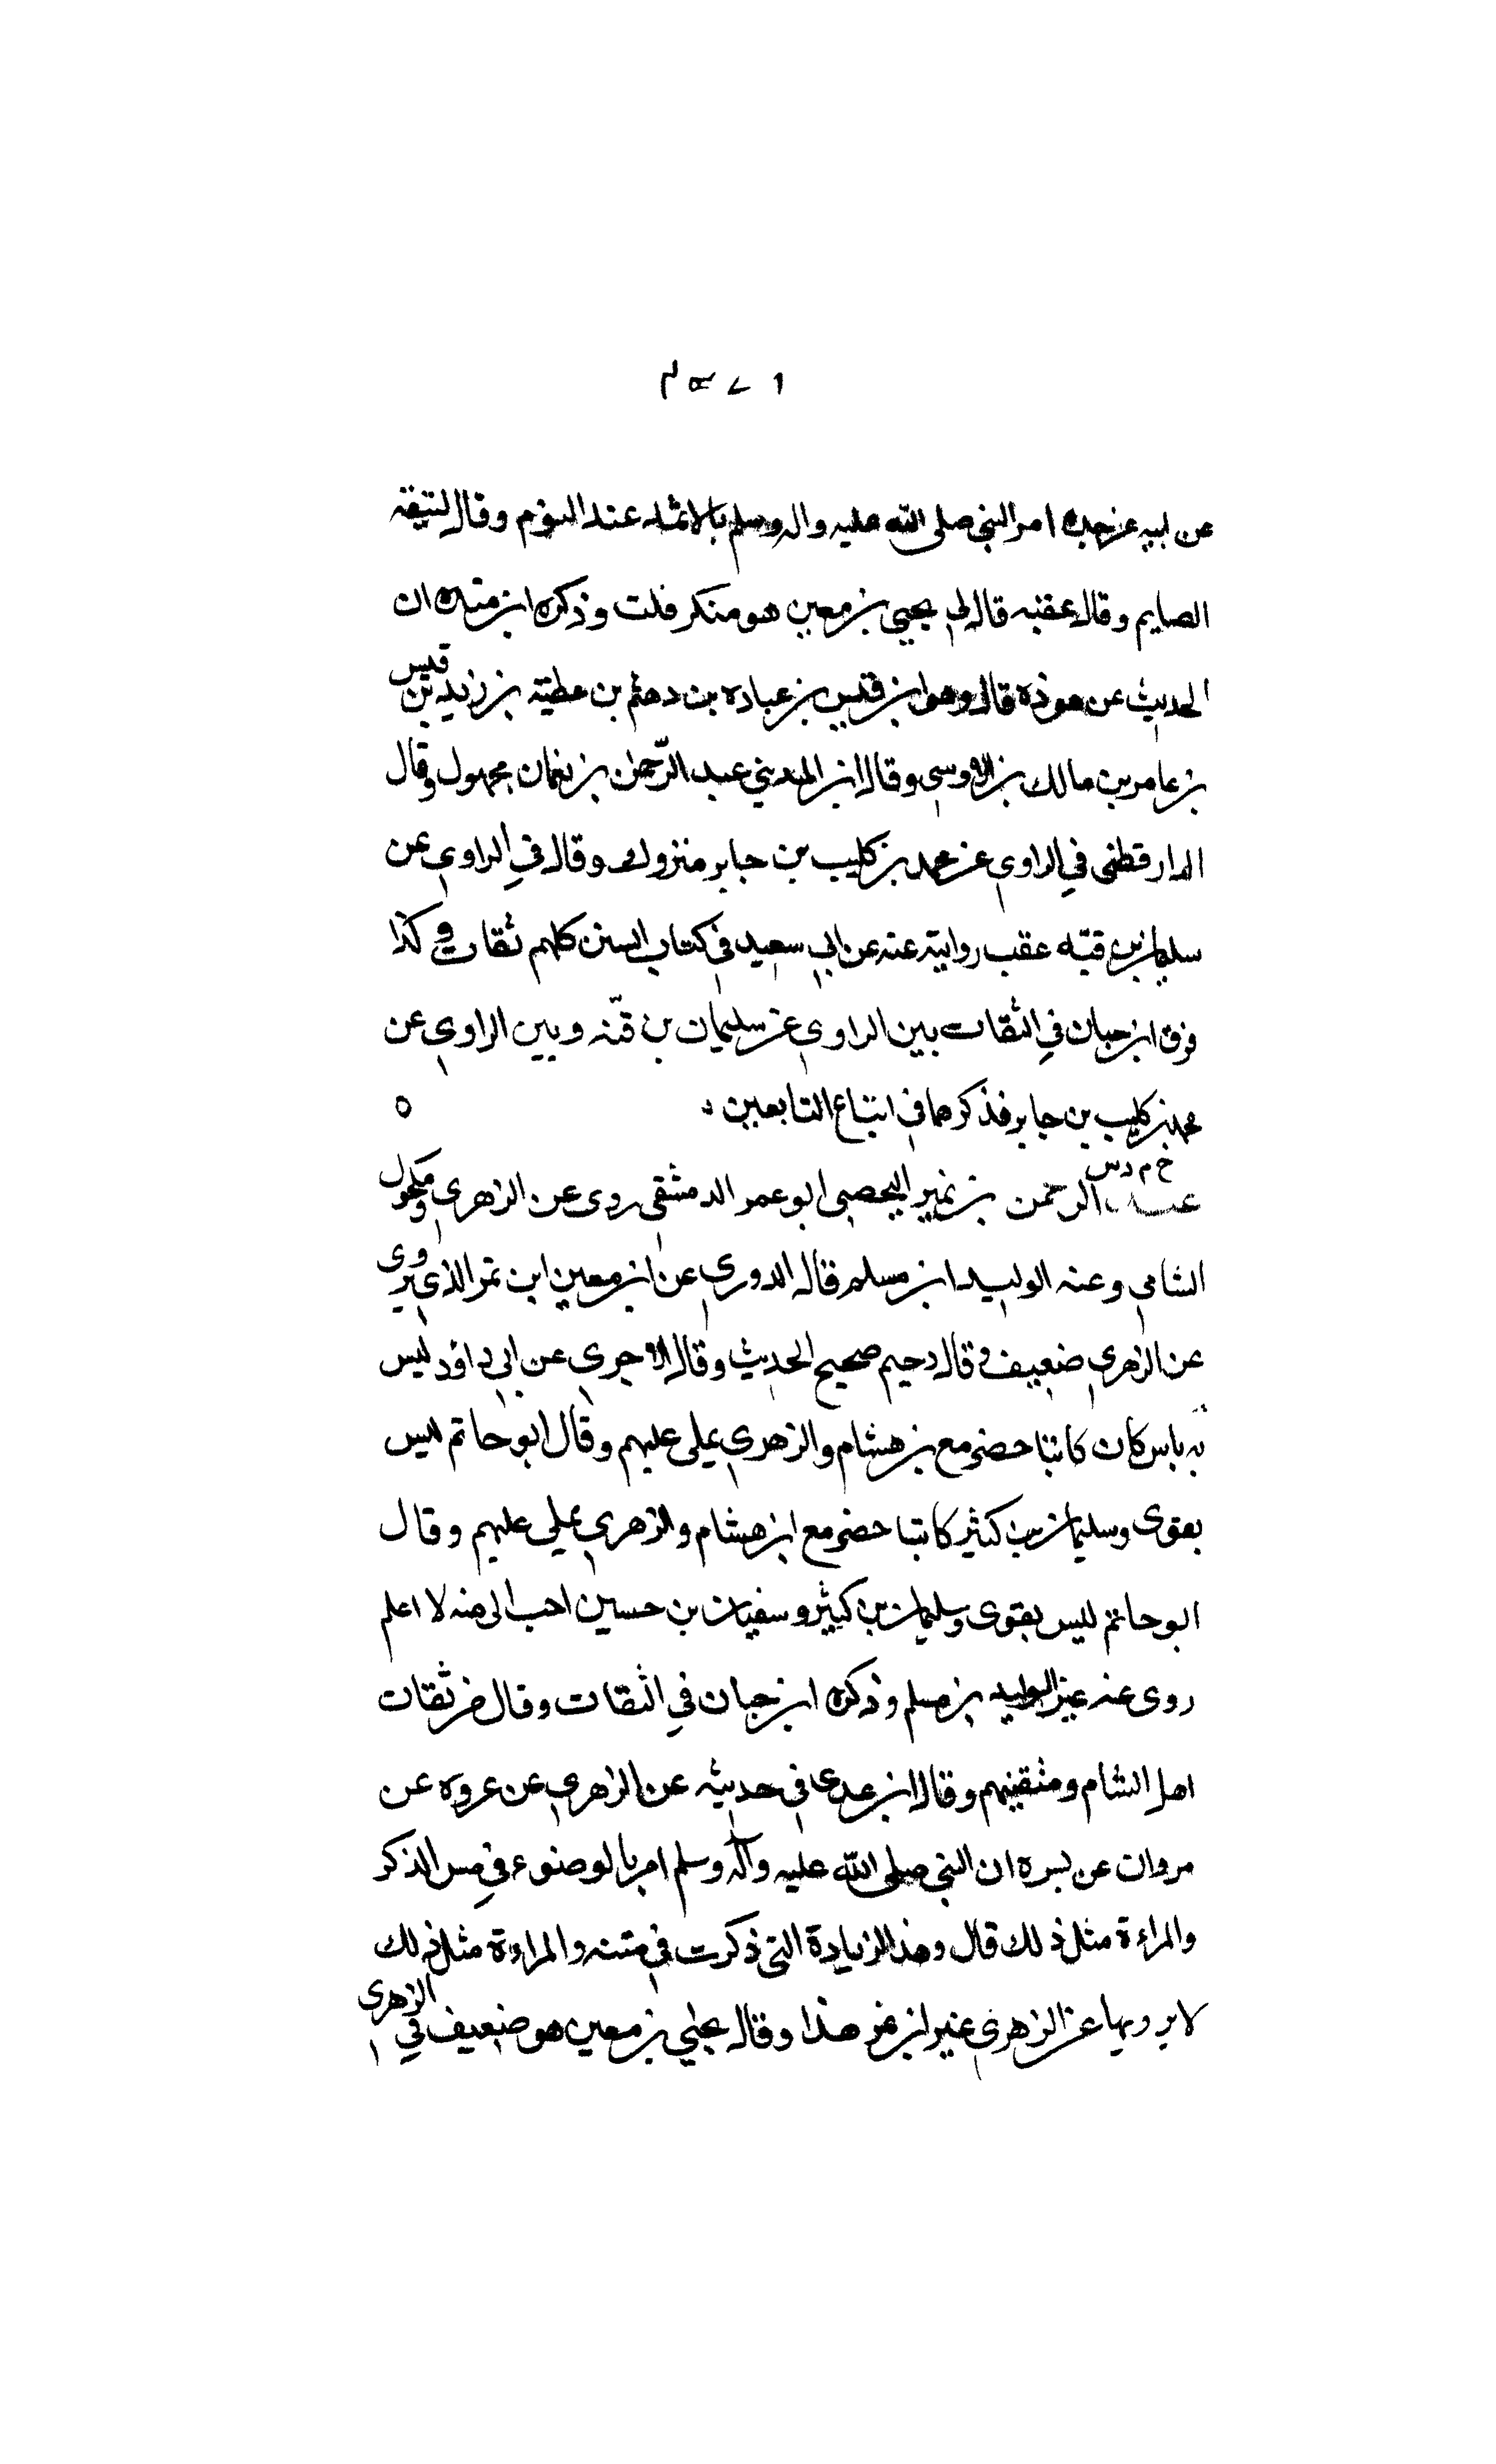 عن ابيه عن جده امر النبي صلى الله عليه واله وسلم بالاثمد عند النوم وقال ليتقه
الصايم وقال عقبه قال لي يحيى بن معين هو منكر قلت وذكره ابن منده ان
الحديث عن هوذه قال وهو ابن قيس بن عباده بن دهثم بن عطيته بن زيد بن قيس
بن عامر بن مالك بن الاوسى وقال ابن المديني عبد الرحمن بن نعمان مجهول وقال
الدارقطنى في الراوي عن محمد بن كليب بن جابر متروك وقال في الراوي عن
سليمان بن قته عقب روايته عنه عن ابي سعيد في كتاب السنن كلهم ثقات وكذا
فرق ابن حبان في الثقات بين الراوي عن سليمان بن قتّه وبين الراوي عن
محمد بن كليب بن جابر فذكرهما في اتباع التابعين ه
خ م د س
عبد الرحمن بن نمير اليحصبي ابو عمر الدمشقي روى عن الزهري ومكحول
الشامي وعنه الوليد ابن مسلم قال الدوري عن ابن معين ابن نمر الذي يروى
عن الزهري ضعيف وقال دحيم صحيح الحديث وقال الاجري عن ابي داؤد ليس
به باس كان كاتبا حضر مع بن هشام والزهري يملي عليهم وقال ابو حاتم ليس
بقوى وسليمان بن كثير كاتبا حضر مع ابن هشام والزهري يملي عليهم وقال
ابو حاتم ليس بقوى وسليمان بن كثير وسفيان بن حسين احب الى منه لا اعلم
روى عنه غير الوليد بن مسلم وذكره ابن حبان في الثقات وقال من ثقات
اهل الشام ومتقنيهم وقال ابن عدى في حديثه عن الزهري عن عروه عن
مروان عن بسره ان النبي صلى الله عليه وآله وسلم امر بالوضوء في مس الذكر
والمراءة مثل ذلك قال وهذا الزيادة التي ذكرت في متنه والمراءة مثل ذلك
لا يرويها عن الزهري غير ابن نمر هذا وقال يحيي بن معين هو ضعيف في الزهري